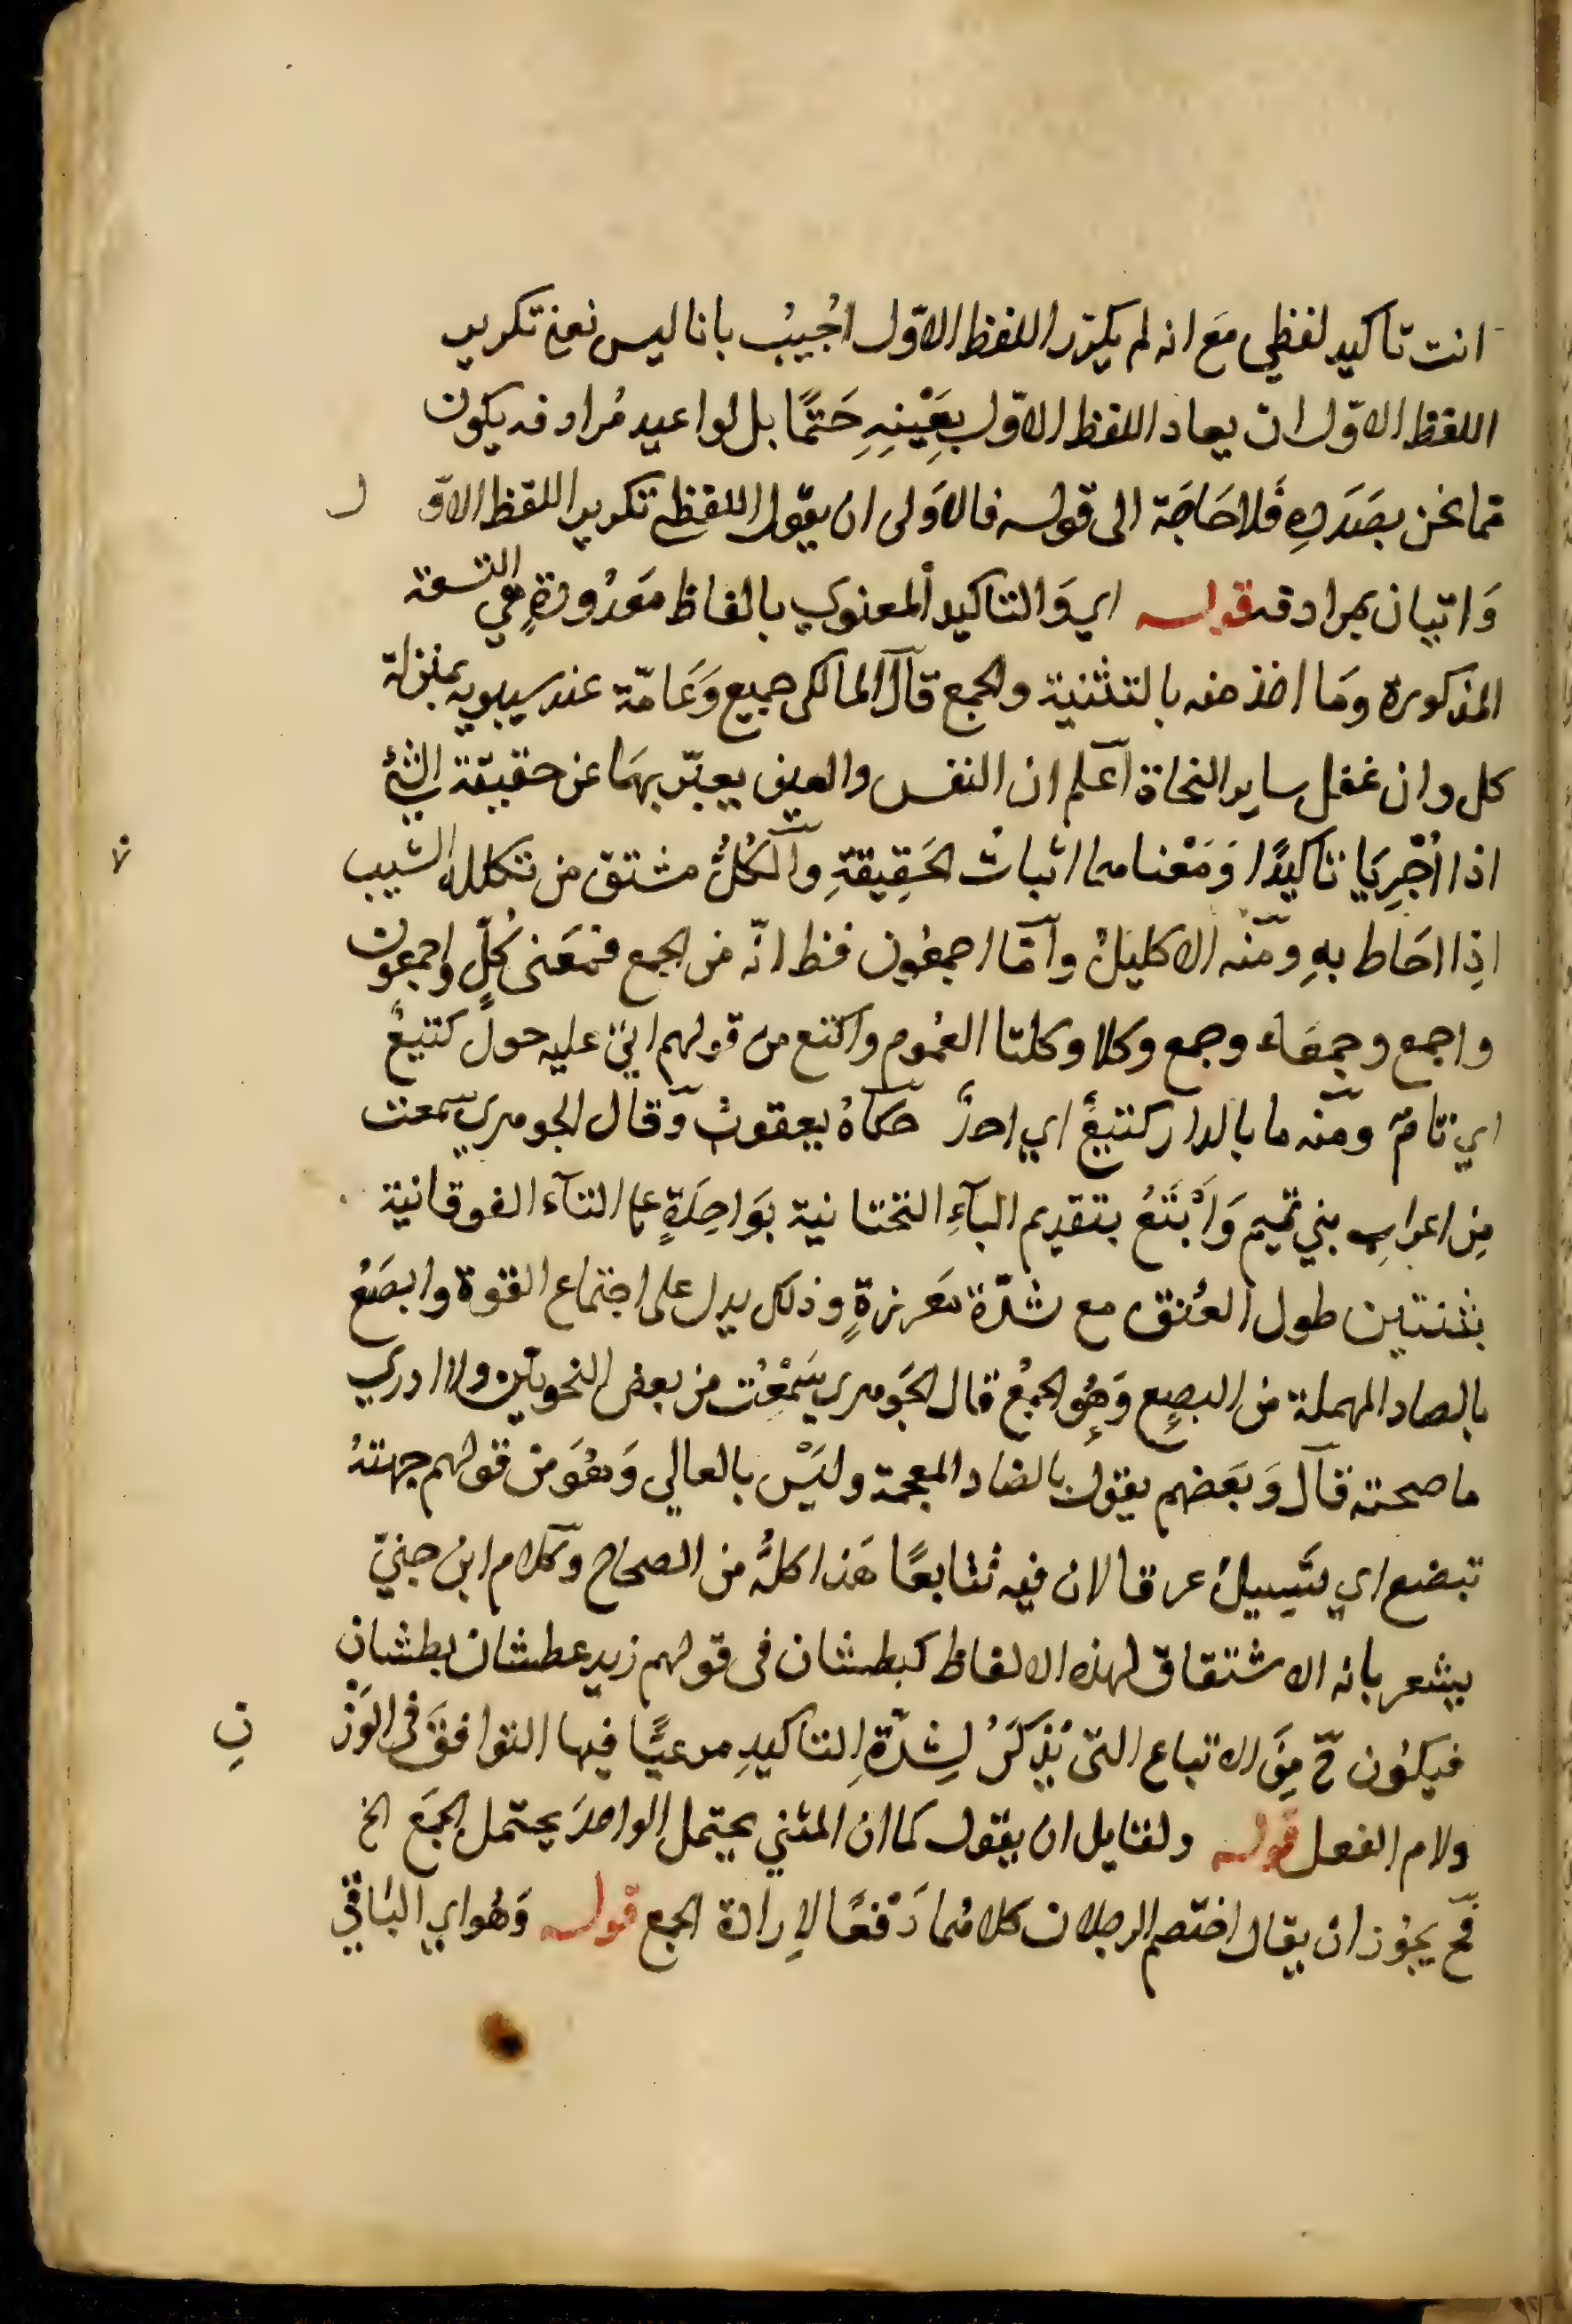 انت تاكيد لفظي مَع انه لم يكرّر اللفظ الاوّل اُجُيبُ بانا ليس نعني تكرير
اللفظ الاوّل ان يعاد اللفظ الاوّل بِعَيْنِهِ حَتمًا بل لو اعيد مُرادفه يكون
مما نحن بصَدَدهِ فَلا حَاجَة الى قوله فالاَولى ان يقول اللفظي تكرير اللفظ الاوّ ل
وَاتيان بمرادفه قوله اي وَالتاكيد المعنوي بالفاظ مَعدُودةٍ هي التسعة
المذكورة وَما اخذ منه بالتثنية والجمع قال المالكى جميع وَعَامّة عند سيبويه بمنزلة
كل وان غفل ساير النحاة اعلم ان النفس والعين يعبّر بهمَا عن حقيقة الشئ
اذا اُجْرِيَا تاكيدًا وَمَعْناهما اثباتُ الحَقِيقةِ والكُلُّ مشتق من تكلله الشيب
اذِا احَاط بهِ ومنه الاكليلُ وامّا اجمعُون فظ انّه من الجمع فمعَنى كُلٍّ واجمعون
واجمع وجمعَاء وجمع وكلا وكلتا العُموم واكتع من قولهم اتىٰ عليه حولٌ كتيعٌ
اي تامّ ومنه ما بالدار كتيعٌ اي احدٌ حكاهُ يعقوبُ وقال الجوهري سمعت
مِن اعرابِ بني تميم وَاَبْتَعُ بتقديم البآءِ التحتانية بوَاحِدَةٍ على التآء الفوقانية
بثنتين طول العُنق مع شدّة مَعرزةٍ وذلك يدل على اجتماع القوة وابصَعُ
بالصاد المهملة من البصِع وَهُو الجمْعُ قال الجَوهرى سَمْعُت من بعض النحويّين ولا ادري
ما صحته قال وَبَعَضهم يقول بالضاد المعجمة وليَسْ بالعالي وَهُوَ من قولهم جبهتهُ
تبضع اي يتَسِيلُ عرقا لان فيه تتابعًا هَذا كلهُّ من الصحاح وكلام ابن جنيّ
يشعر بانه الاشتقاق لهذه الالفاظ كبطشان فى قولهم زيد عطشان بطشان
فيكون ح مِنَ الاتباع التى يُذكَرُ لِشِدّةِ التاكيدِ مرعيًّا فيها التوافقَ فى الوَزْ نِ
ولام الفعل قوله ولقايل ان يقول كما ان المثني يحتمل الواحدَ يحتمل الجمَع الخ
فح يجوُز ان يقال اختصم الرجلان كلاهُما دَفعًا لاِرادة الجمع قوله وَهُو اي البَاقي